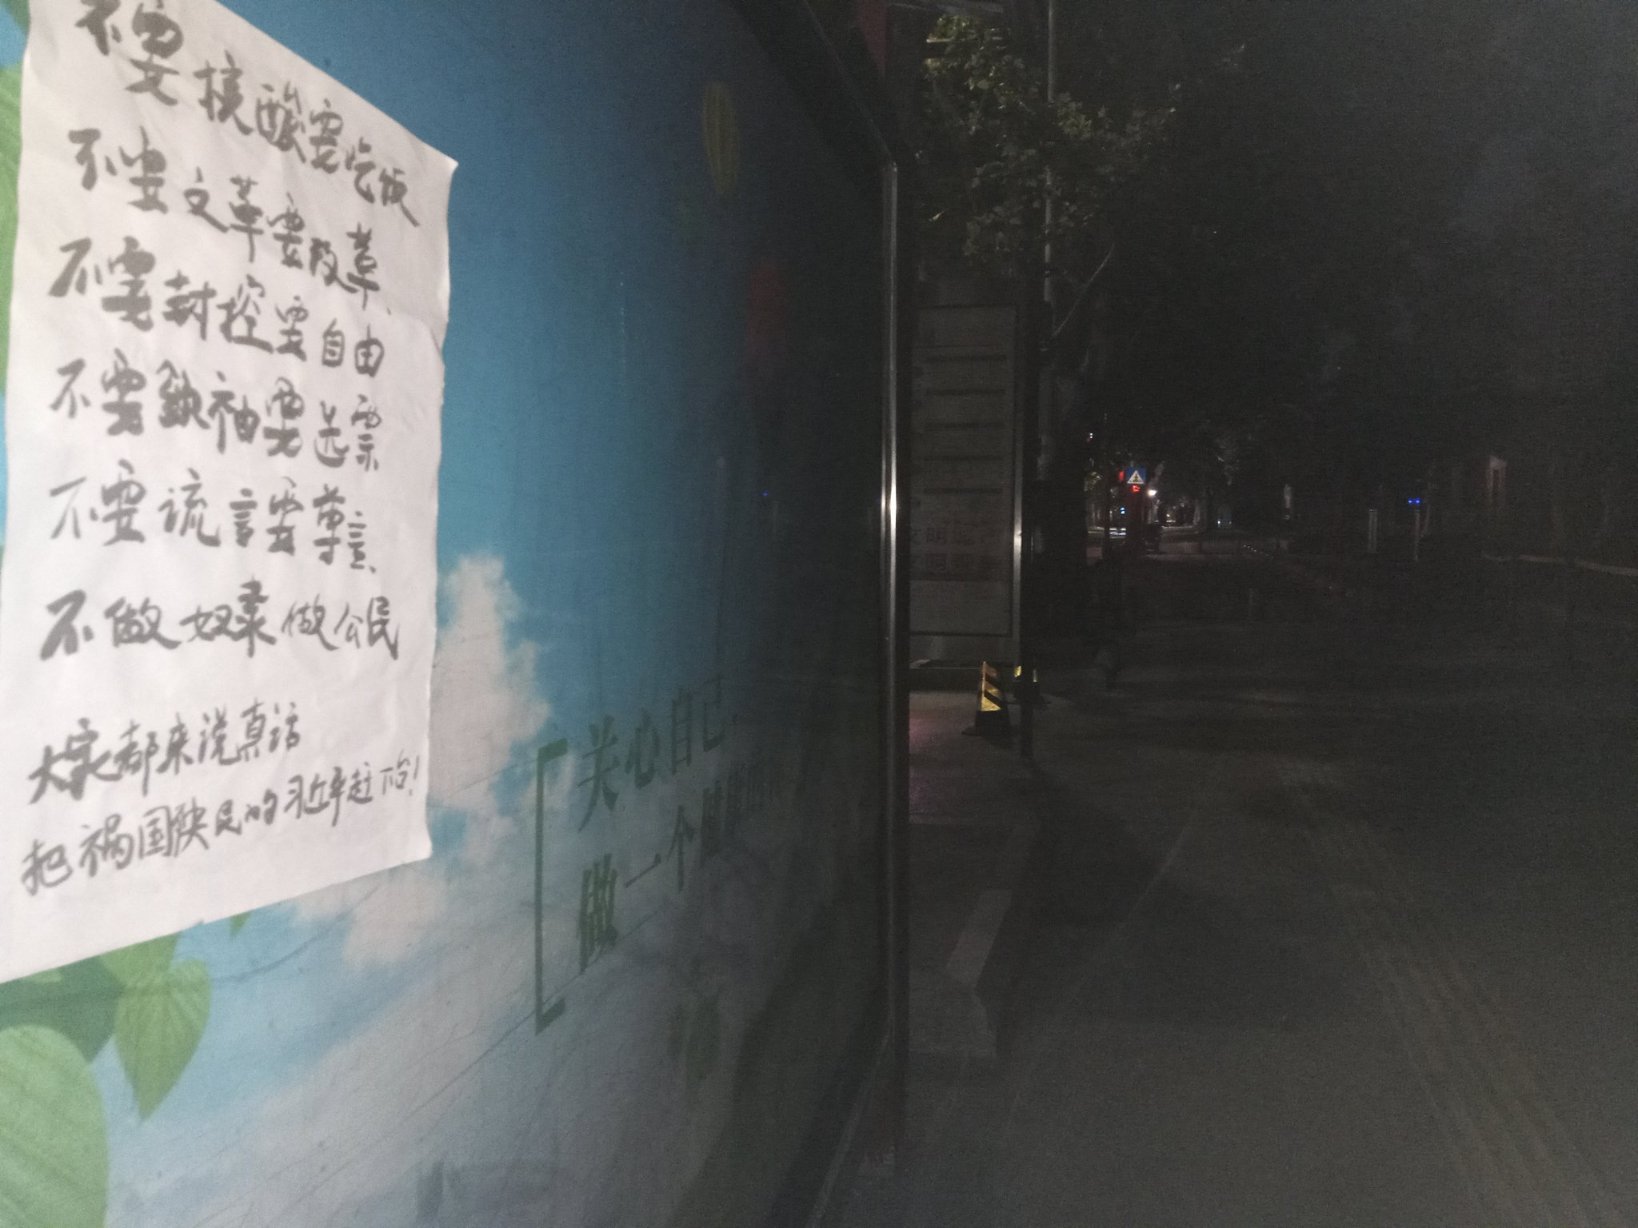 不要核酸要吃饭
不要文革要改革
不要封控要自由
不要领袖要选票
不要谎言要尊言
不做奴隶做公民
大家都来说真话
把祸国殃民的习近平赶下台！
关心自己
做一个